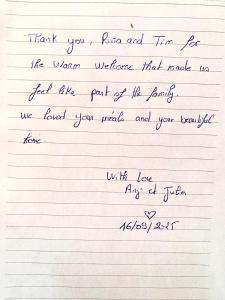 Thank you, Rina and Tim for
the warm welcome that made us
feel like part of the family.
We loved your meals and your beautiful
home.
With love
Anj et Julia
♡
16/09/2025